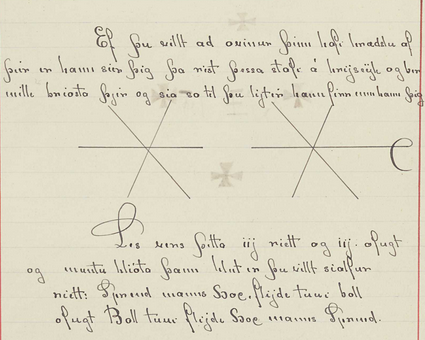 Ef þu villt ad ovinur þinn hafi hræddu af
þier er hann sier þig þa rist þessa stafi á hrijseyk og ber
mille briosta þier og sia so til þu lijter hann firr enn hann þig
Les vers þetto iij riett og iij. ofugt
og muntu hliota þann hlut er þu villt sialfur
riett: Spend manns Hoc, flijde tuur boll
ofugt Boll tuur flijde Hoc manns Spend.